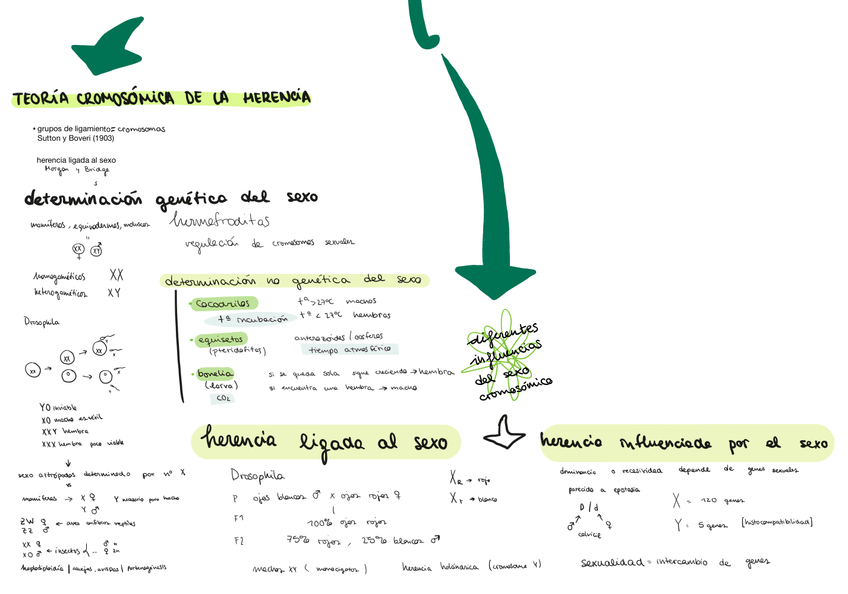 TEORÍA CROMOSÓMICA DE LA HERENCIA
• grupos de ligamiento = cromosomas
Sutton y Boveri (1903)
herencia ligada al sexo
Morgan y Bridge
determinación genética del sexo
mamíferos, equinodermos, moluscos
XX XY
♀ ♂
homogaméticos XX
heterogaméticos XY
hermefroditas
regulación de cromosomas sexuales
determinación no genética del sexo
• cocodrilos tª > 27ºC machos
tª incubación tª < 27ºC hembras
• equisetos anterozoides / oosferas
(pteridofitos) tiempo atmosférico
• bonelia si se queda sola sigue creciendo → hembra
(larva) si encuentra una hembra → macho
CO2
Drosophila
XX
YO inviable
XO macho estéril
XXY hembra
XXX hembra poco viable
sexo artrópodos determinado por nº X
vs
mamíferos → X ♀ Y necesario para macho
Y ♂
ZW ♀ ← aves anfibios reptiles
ZZ ♂
XX ♀ ← insectos
XO ♂
♂ n
♀ 2n
haplodiploidía / abejas, avispas / partenogénesis
diferentes
influencias
del sexo
cromosómico
herencia ligada al sexo
Drosophila
P ojos blancos ♂ x ojos rojos ♀
F1 100% ojos rojos
F2 75% rojos, 25% blancos ♂
XR → rojo
Xr → blanco
machos XY (hemicigotos) herencia holándrica (cromosoma Y)
herencia influenciada por el sexo
dominancia o recesividad depende de genes sexuales
parecido a epistasia
D / d
♂ ♀
calvicie
X = 120 genes
Y = 5 genes [histocompatibilidad]
sexualidad = intercambio de genes